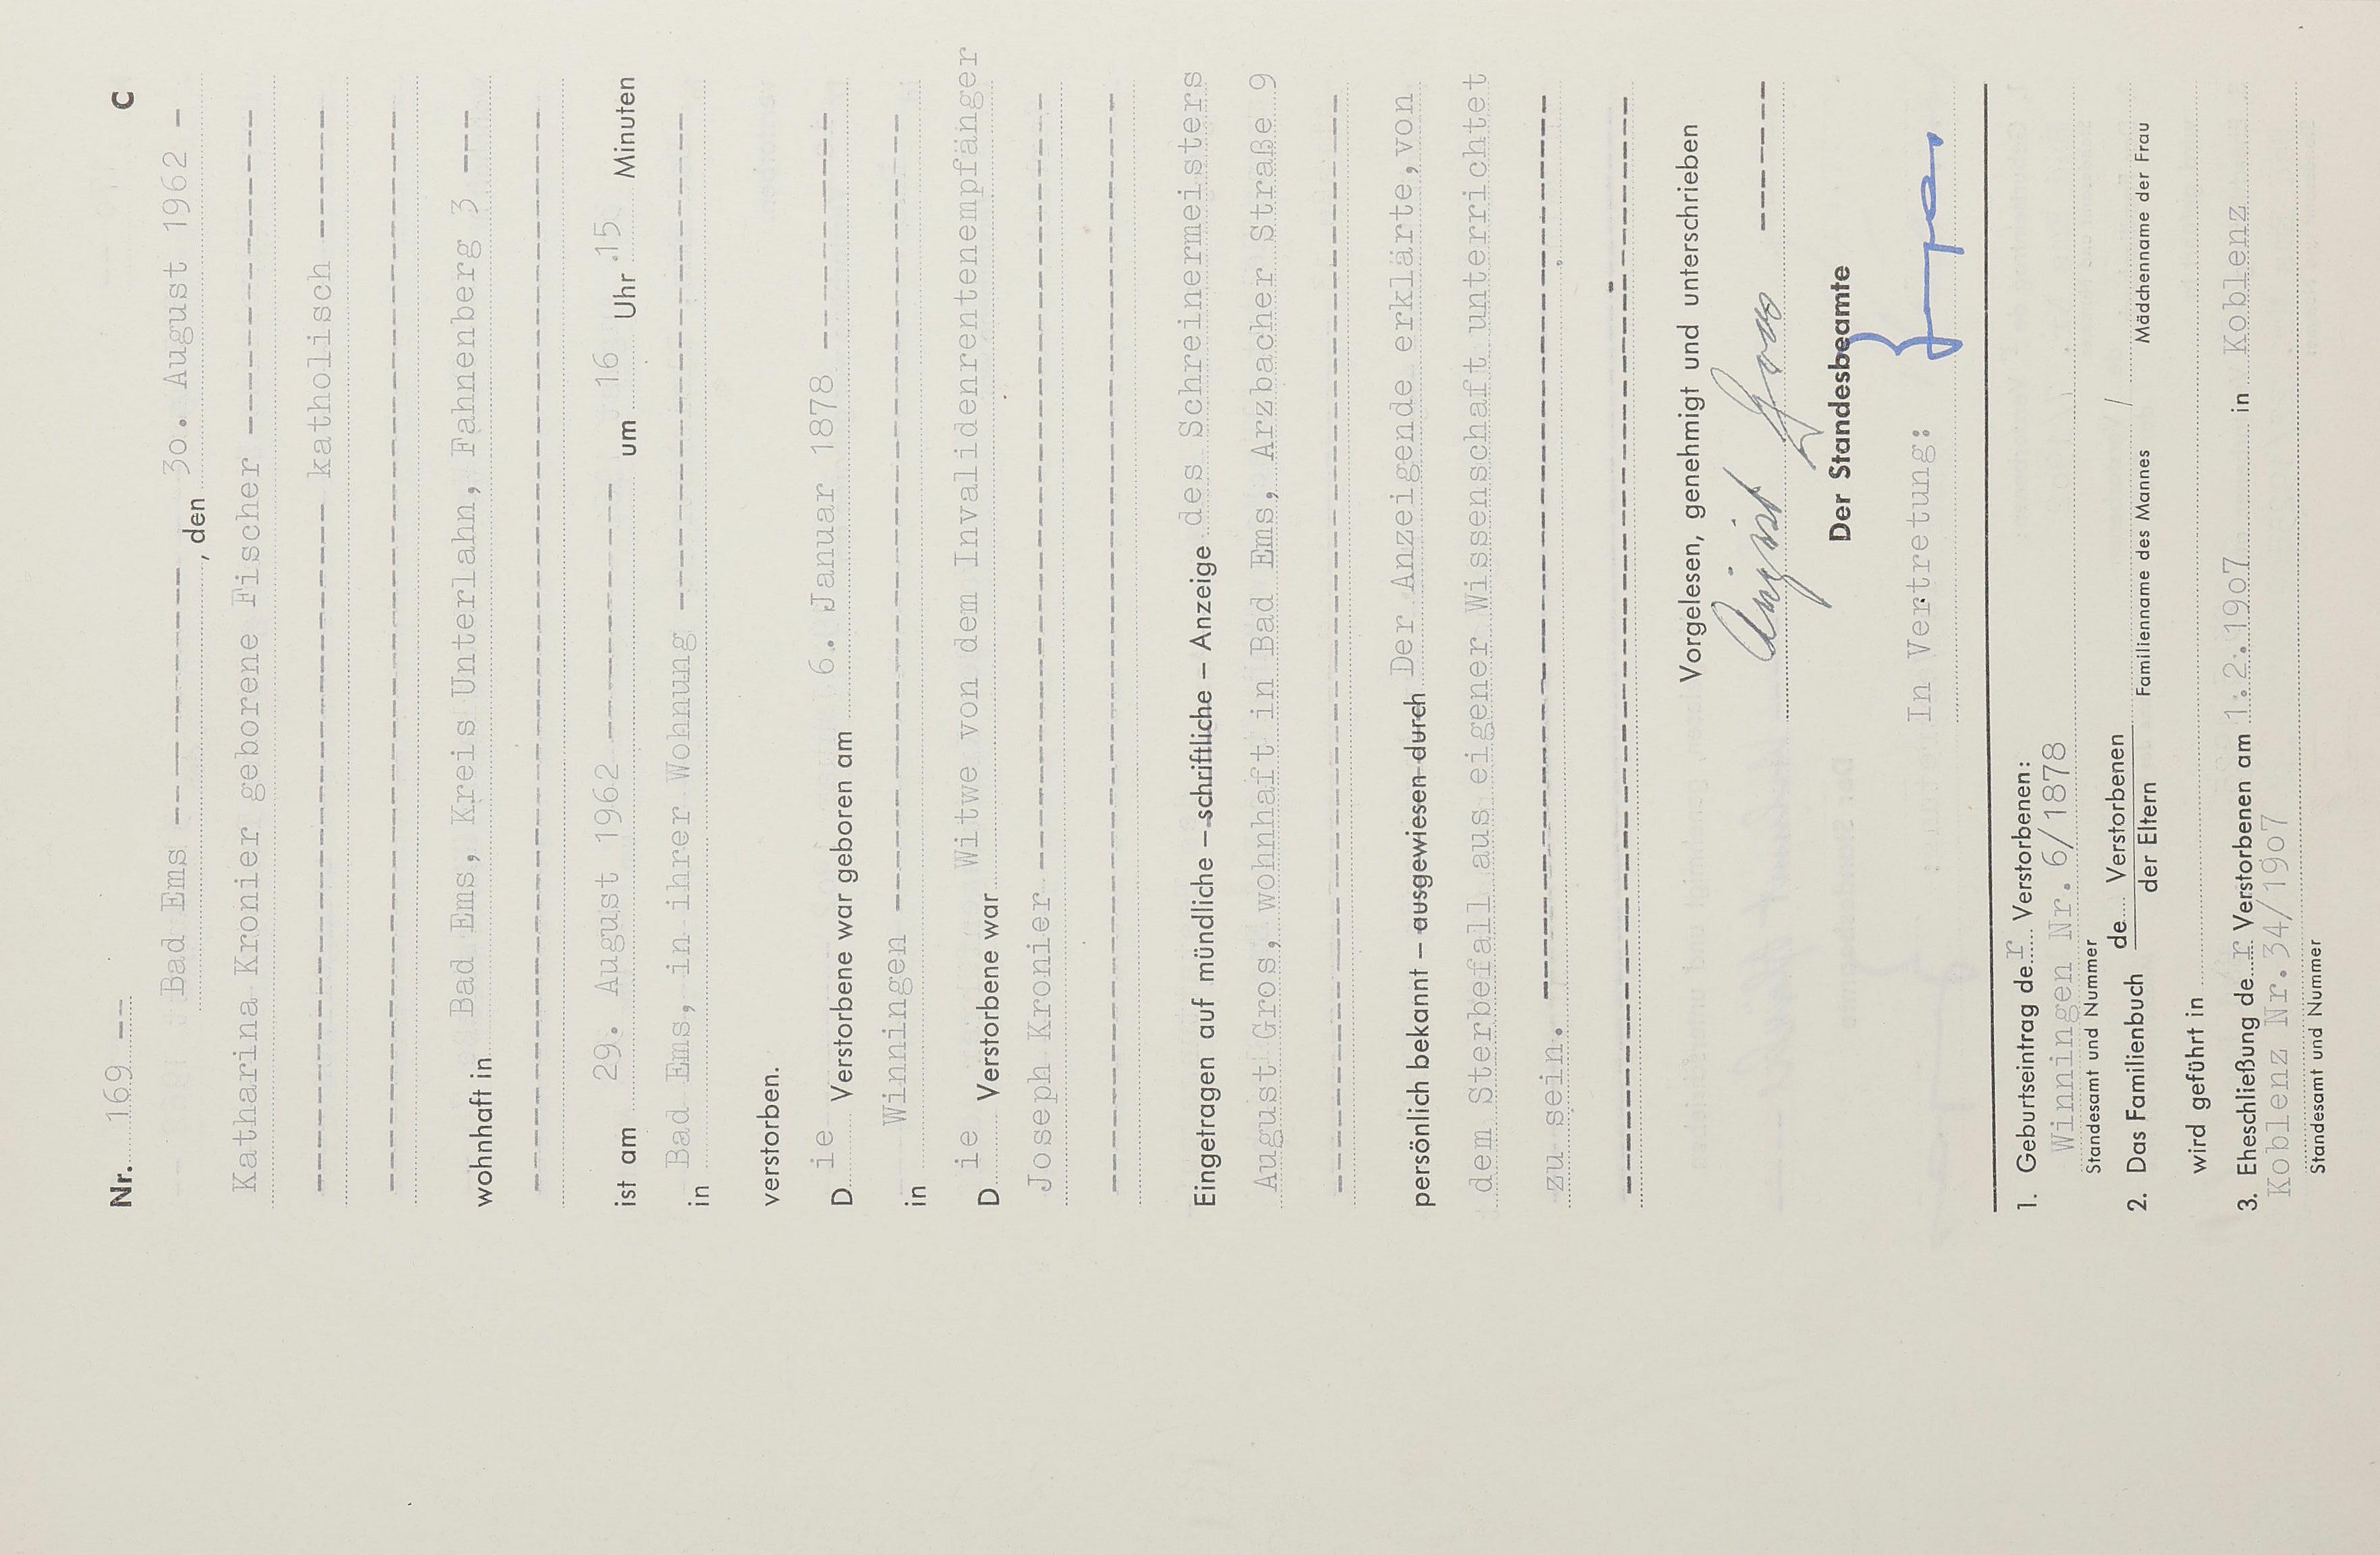 Nr. 169 -- C
Bad Ems ----------, den 30. August 1962 -
Katharina Kronier geborene Fischer ------------
------------------ katholisch -----
wohnhaft in Bad Ems, Kreis Unterlahn, Fahnenberg 3 ---
ist am 29. August 1962 ---------- um 16 Uhr 15 Minuten
in Bad Ems, in ihrer Wohnung ------------------
verstorben.
Die Verstorbene war geboren am 6. Januar 1878 ---------
in Winningen ------------------------------
Die Verstorbene war Witwe von dem Invalidenrentenempfänger
Joseph Kronier -----------------------------
Eingetragen auf mündliche – schriftliche – Anzeige des Schreinermeisters
August Gros, wohnhaft in Bad Ems, Arzbacher Straße 9
persönlich bekannt – ausgewiesen durch Der Anzeigende erklärte, von
dem Sterbefall aus eigener Wissenschaft unterrichtet
zu sein. ---------------------------------
Vorgelesen, genehmigt und unterschrieben
August Gros ------
Der Standesbeamte
In Vertretung:
1. Geburtseintrag der Verstorbenen:
Winningen Nr. 6/1878
Standesamt und Nummer
2. Das Familienbuch de Verstorbenen /
der Eltern Familienname des Mannes Mädchenname der Frau
wird geführt in
3. Eheschließung der Verstorbenen am 1.2.1907 in Koblenz
Koblenz Nr. 34/1907
Standesamt und Nummer